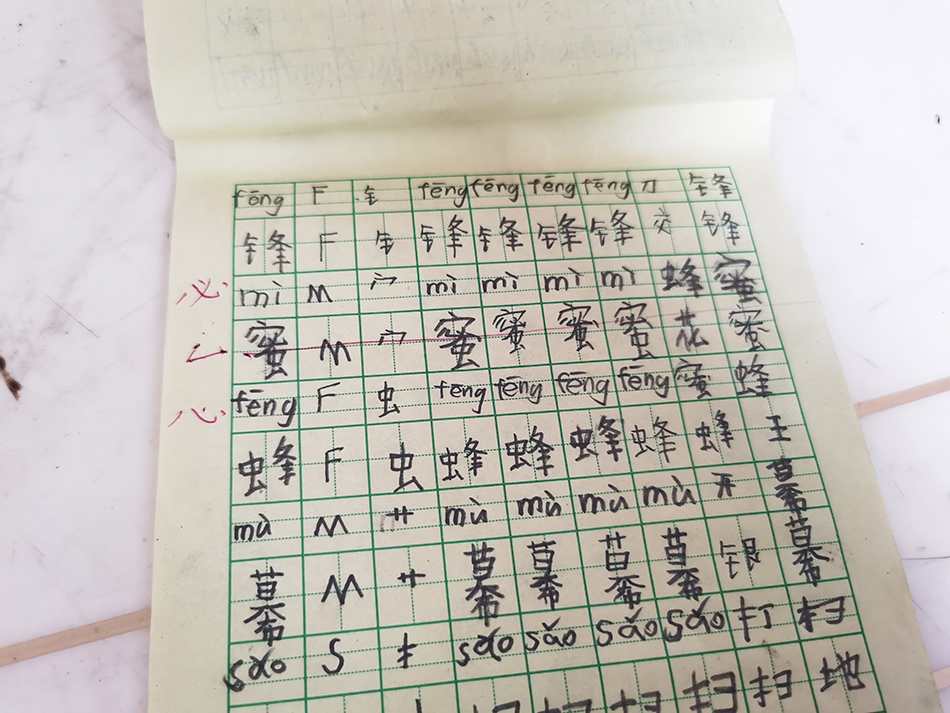 fēng F 钅 fēng fēng fēng fēng 刀 锋
锋 F 钅 锋 锋 锋 锋 交 锋
必 mì M 宀 mì mì mì mì 蜂 蜜
蜜 M 宀 蜜 蜜 蜜 蜜 花 蜜
心 fēng F 虫 fēng fēng fēng fēng 蜜 蜂
蜂 F 虫 蜂 蜂 蜂 蜂 蜂 王
mù M 艹 mù mù mù mù 开 幕
幕 M 艹 幕 幕 幕 幕 银 幕
sǎo S 扌 sǎo sǎo sǎo sǎo 打 扫
扫 扫 扫 扫 扫 地